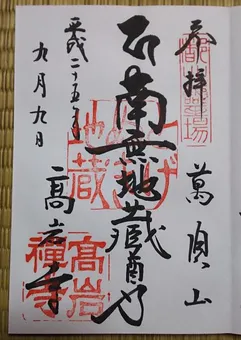 奉拝
萬頂山
南無地蔵尊
高岩寺
平成二十五年
九月九日
地蔵
高岩
禪寺